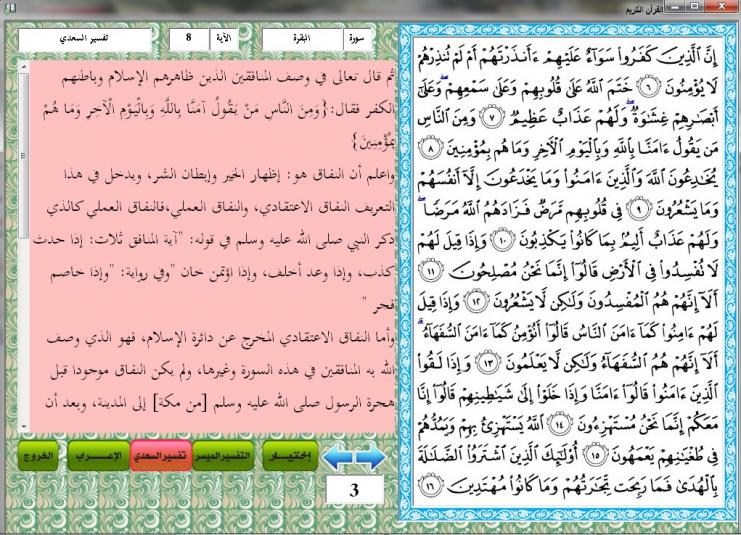 القرآن الكريم
سورة
البقرة
الآية
8
تفسير السعدي
إِنَّ ٱلَّذِينَ كَفَرُواْ سَوَآءٌ عَلَيْهِمْ ءَأَنذَرْتَهُمْ أَمْ لَمْ تُنذِرْهُمْ
لَا يُؤْمِنُونَ ٦ خَتَمَ ٱللَّهُ عَلَىٰ قُلُوبِهِمْ وَعَلَىٰ سَمْعِهِمْ ۖ وَعَلَىٰٓ
أَبْصَٰرِهِمْ غِشَٰوَةٌ ۖ وَلَهُمْ عَذَابٌ عَظِيمٌ ٧ وَمِنَ ٱلنَّاسِ
مَن يَقُولُ ءَامَنَّا بِٱللَّهِ وَبِٱلْيَوْمِ ٱلْءَاخِرِ وَمَا هُم بِمُؤْمِنِينَ ٨
يُخَٰدِعُونَ ٱللَّهَ وَٱلَّذِينَ ءَامَنُواْ وَمَا يَخْدَعُونَ إِلَّآ أَنفُسَهُمْ
وَمَا يَشْعُرُونَ ٩ فِى قُلُوبِهِم مَّرَضٌ فَزَادَهُمُ ٱللَّهُ مَرَضًا ۖ
وَلَهُمْ عَذَابٌ أَلِيمٌۢ بِمَا كَانُواْ يَكْذِبُونَ ١٠ وَإِذَا قِيلَ لَهُمْ
لَا تُفْسِدُواْ فِى ٱلْأَرْضِ قَالُوٓاْ إِنَّمَا نَحْنُ مُصْلِحُونَ ١١
أَلَآ إِنَّهُمْ هُمُ ٱلْمُفْسِدُونَ وَلَٰكِن لَّا يَشْعُرُونَ ١٢ وَإِذَا قِيلَ
لَهُمْ ءَامِنُواْ كَمَآ ءَامَنَ ٱلنَّاسُ قَالُوٓاْ أَنُؤْمِنُ كَمَآ ءَامَنَ ٱلسُّفَهَآءُ ۗ
أَلَآ إِنَّهُمْ هُمُ ٱلسُّفَهَآءُ وَلَٰكِن لَّا يَعْلَمُونَ ١٣ وَإِذَا لَقُواْ
ٱلَّذِينَ ءَامَنُواْ قَالُوٓاْ ءَامَنَّا وَإِذَا خَلَوْاْ إِلَىٰ شَيَٰطِينِهِمْ قَالُوٓاْ إِنَّا
مَعَكُمْ إِنَّمَا نَحْنُ مُسْتَهْزِءُونَ ١٤ ٱللَّهُ يَسْتَهْزِئُ بِهِمْ وَيَمُدُّهُمْ
فِى طُغْيَٰنِهِمْ يَعْمَهُونَ ١٥ أُوْلَٰٓئِكَ ٱلَّذِينَ ٱشْتَرَوُاْ ٱلضَّلَٰلَةَ
بِٱلْهُدَىٰ فَمَا رَبِحَت تِّجَٰرَتُهُمْ وَمَا كَانُواْ مُهْتَدِينَ ١٦
ثم قال تعالى في وصف المنافقين الذين ظاهرهم الإسلام وباطنهم
الكفر فقال:{وَمِنَ النَّاسِ مَنْ يَقُولُ آمَنَّا بِاللَّهِ وَبِالْيَوْمِ الْآخِرِ وَمَا هُمْ
بِمُؤْمِنِينَ}
واعلم أن النفاق هو: إظهار الخير وإبطان الشر، ويدخل في هذا
التعريف النفاق الاعتقادي، والنفاق العملي،فالنفاق العملي كالذي
ذكر النبي صلى الله عليه وسلم في قوله: "آية المنافق ثلات: إذا حدث
كذب، وإذا وعد أخلف، وإذا اؤتمن خان "وفي رواية: "وإذا خاصم
فجر "
وأما النفاق الاعتقادي المخرج عن دائرة الإسلام، فهو الذي وصف
الله به المنافقين في هذه السورة وغيرها، ولم يكن النفاق موجودا قبل
هجرة الرسول صلى الله عليه وسلم [من مكة] إلى المدينة، وبعد أن
إختيار
التفسير الميسر
تفسير السعدي
الإعراب
الخروج
3